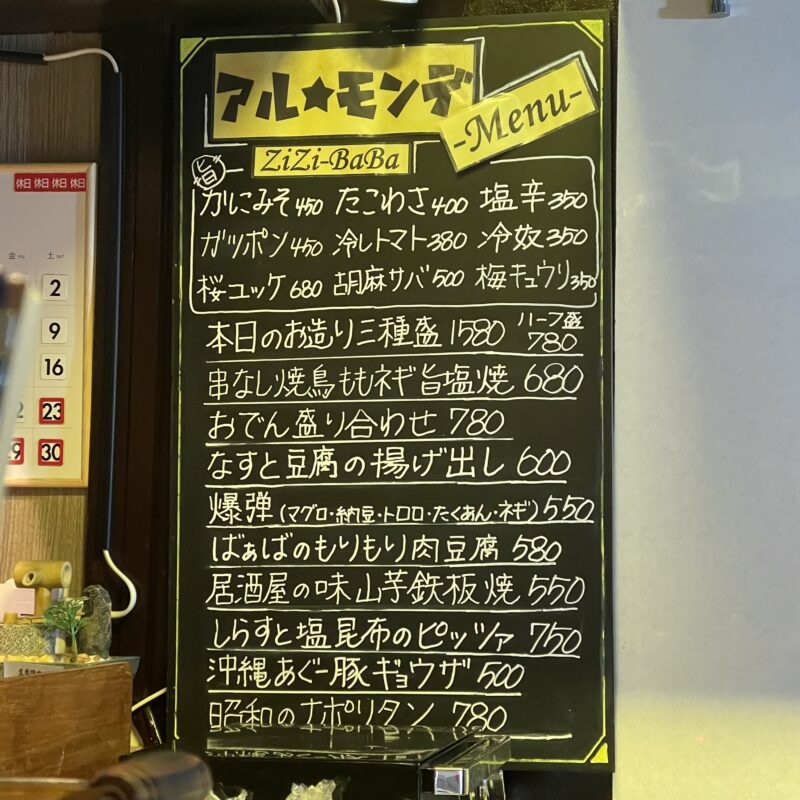 アル★モンデ
-Menu-
ZiZi-BaBa
旨
かにみそ450 たこわさ400 塩辛350
ガツポン450 冷しトマト380 冷奴350
桜ユッケ680 胡麻サバ500 梅キュウリ350
本日のお造り三種盛1580 ハーフ盛780
串なし焼鳥ももネギ旨塩焼 680
おでん盛り合わせ 780
なすと豆腐の揚げ出し 600
爆弾(マグロ・納豆・トロロ・たくあん・ネギ)550
ばぁばのもりもり肉豆腐 580
居酒屋の味山芋鉄板焼 550
しらすと塩昆布のピッツァ 750
沖縄あぐー豚ギョウザ 500
昭和のナポリタン 780
休日 休日 休日 休日
金 土 SAT
2
9
16
23
30